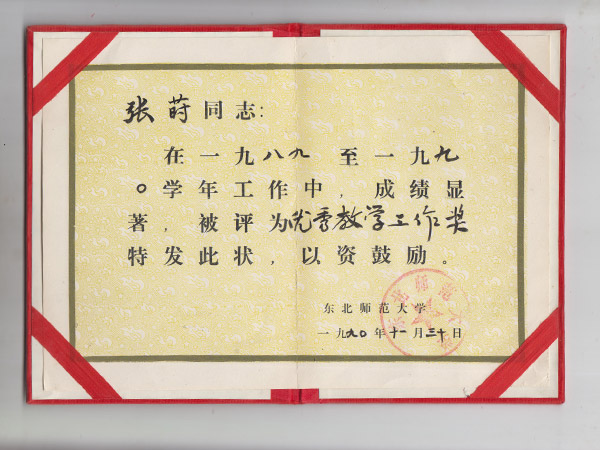 张莳同志：
在一九八九至一九九
〇学年工作中，成绩显
著，被评为优秀教学工作奖
特发此状，以资鼓励。
东北师范大学
一九九〇年十一月三十日
东北师范大学